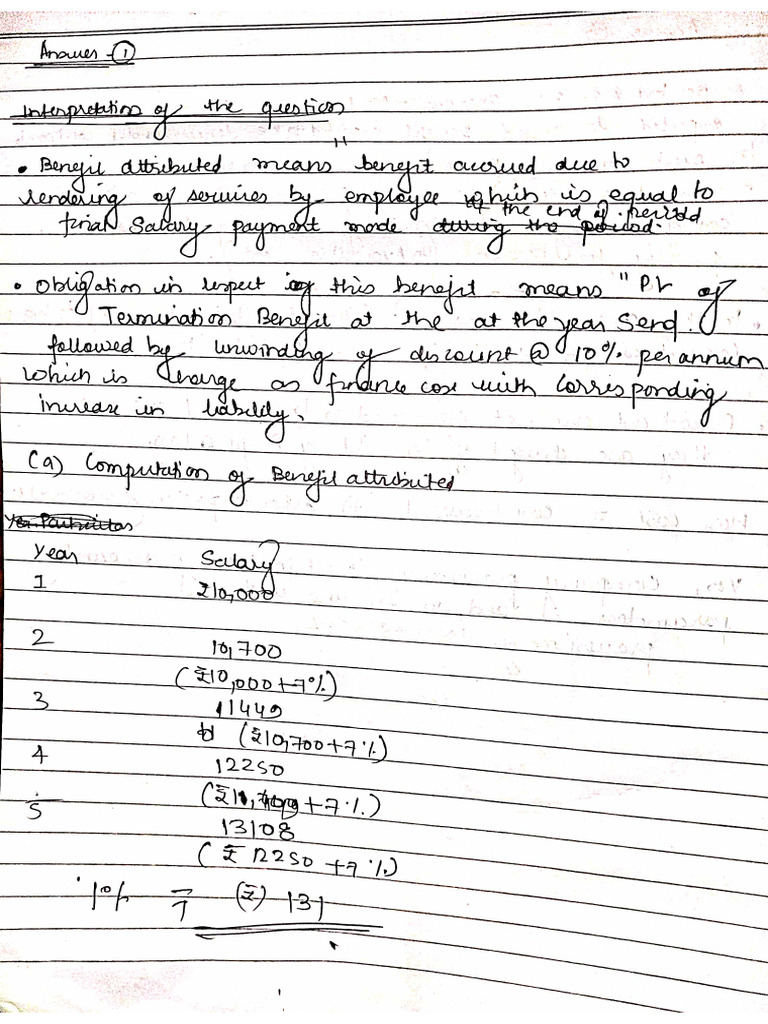 Answer - ①
Interpretation of the question
"
• Benefit attributed means benefit accrued due to
rendering of services by employee which is equal to
the end of period
final Salary payment made during the period.
• Obligation in respect of this benefit means "PV of
Termination Benefit at the at the year Send.
followed by unwinding of discount @ 10% per annum
which is charge as finance cost with corresponding
increase in liability.
(a) Computation of Benefit attributed
Year Salary
1 ₹10,000
2 10,700
(₹10,000+7%)
3 11449
(₹10,700+7%)
4 12250
(₹11,449+7%)
5 13108
(₹ 12250 +7%)
1% = (₹) 131